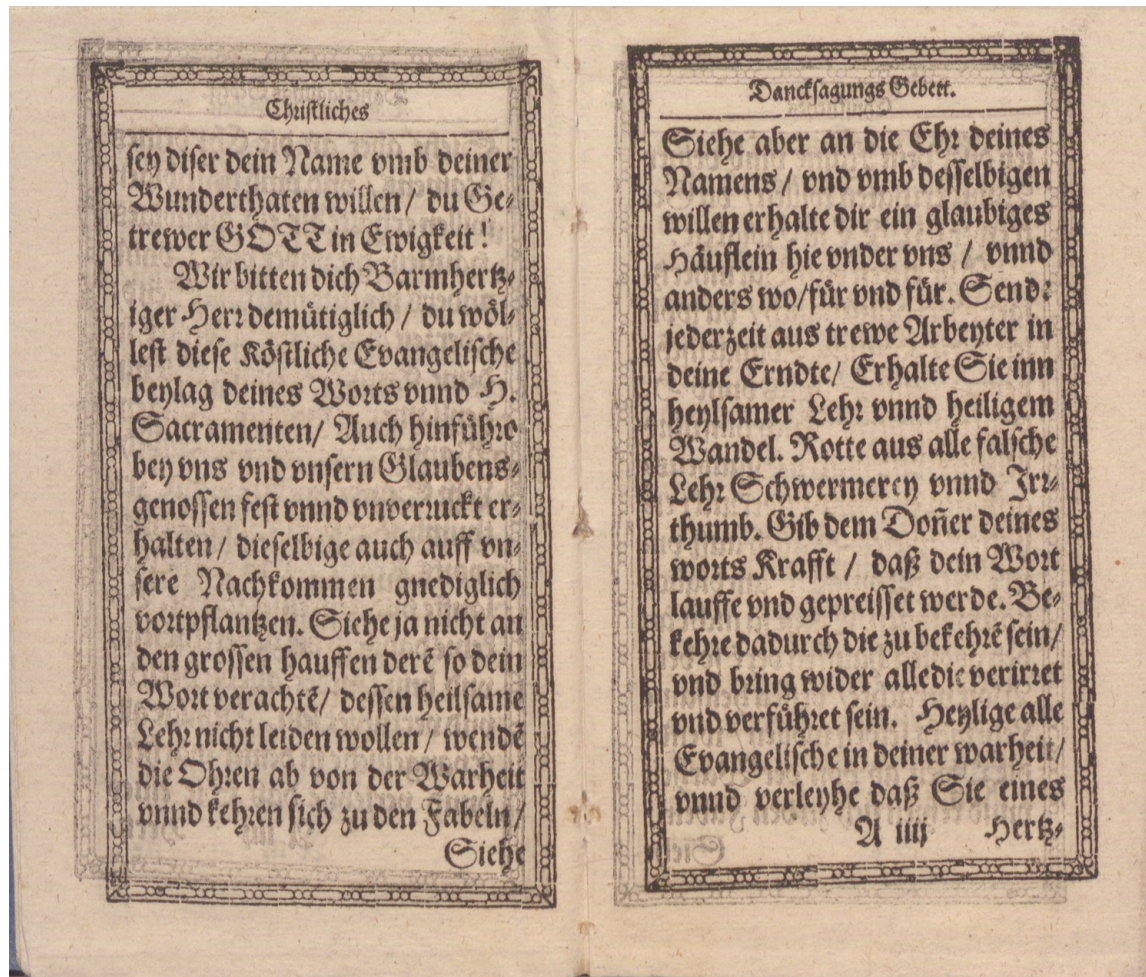 Christliches
sey diser dein Name vmb deiner
Wunderthaten willen / du Ge-
trewer GOTT in Ewigkeit!
Wir bitten dich Barmhertz-
iger Herr demütiglich / du wöl-
lest diese Köstliche Evangelische
beylag deines Worts vnnd H.
Sacramenten / Auch hinführo
bey vns vnd vnsern Glaubens-
genossen fest vnnd vnverruckt er-
halten / dieselbige auch auff vn-
sere Nachkommen gnediglich
vortpflantzen. Siehe ja nicht an
den grossen hauffen derē so dein
Wort verachtē / dessen heilsame
Lehr nicht leiden wollen / wendē
die Ohren ab von der Warheit
vnnd kehren sich zu den Fabeln /
Siehe
Dancksagungs Gebett.
Siehe aber an die Ehr deines
Namens / vnd vmb desselbigen
willen erhalte dir ein glaubiges
Häuflein hie vnder vns / vnnd
anders wo / für vnd für. Sende
jederzeit aus trewe Arbeyter in
deine Erndte / Erhalte Sie inn
heylsamer Lehr vnnd heiligem
Wandel. Rotte aus alle falsche
Lehr Schwermerey vnnd Irr-
thumb. Gib dem Doñer deines
worts Krafft / daß dein Wort
lauffe vnd gepreisset werde. Be-
kehre dadurch die zu bekehrē sein /
vnd bring wider alle die verirret
vnd verführet sein. Heylige alle
Evangelische in deiner warheit /
vnnd verleyhe daß Sie eines
A iiij Hertz-